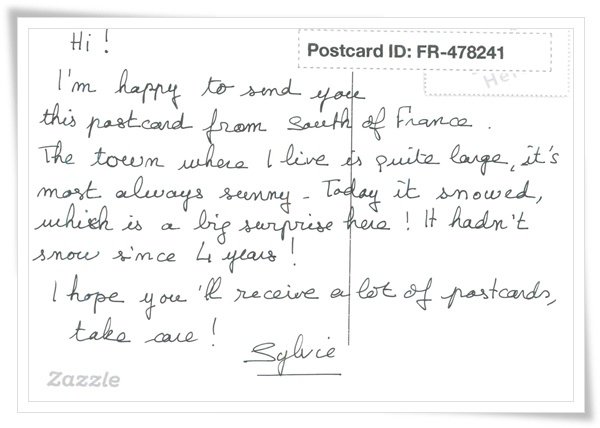 Hi !
Postcard ID: FR-478241
I'm happy to send you
this postcard from South of France.
The town where I live is quite large, it's
most always sunny - Today it snowed,
which is a big surprise here ! It hadn't
snow since 4 years !
I hope you'll receive a lot of postcards,
take care !
Sylvie
Zazzle